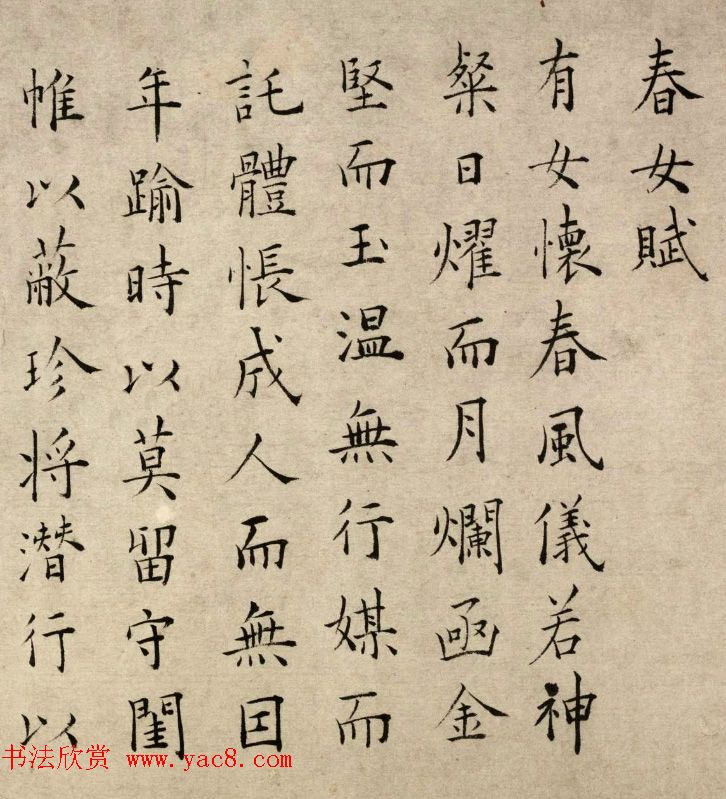 春女賦
有女懷春風儀若神
粲日燿而月爛凾金
堅而玉温無行媒而
託體悵成人而無因
年踰時以莫留守閨
帷以蔽珍将潜行以
书法欣赏 www.yac8.com